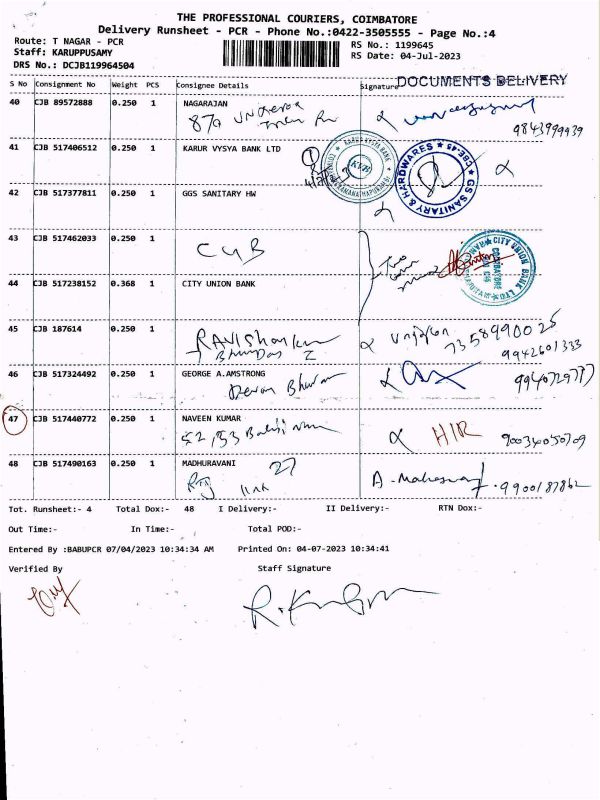 THE PROFESSIONAL COURIERS, COIMBATORE
Delivery Runsheet - PCR - Phone No.:0422-3505555 - Page No.:4
Route: T NAGAR - PCR RS No.: 1199645
Staff: KARUPPUSAMY RS Date: 04-Jul-2023
DRS No.: DCJB119964504
S No Consignment No Weight PCS Consignee Details Signature DOCUMENTS DELIVERY
40 CJB 89572888 0.250 1 NAGARAJAN
870
9843999939
41 CJB 517406512 0.250 1 KARUR VYSYA BANK LTD
KARUR VYSYA BANK
KVB
GS SANITARY & HARDWARES CBE-45
42 CJB 517377811 0.250 1 GGS SANITARY HW
43 CJB 517462033 0.250 1
CUB
CITY UNION BANK LTD.
COIMBATORE
44 CJB 517238152 0.368 1 CITY UNION BANK
45 CJB 187614 0.250 1
7358990025
9942601333
46 CJB 517324492 0.250 1 GEORGE A.AMSTRONG
47 CJB 517440772 0.250 1 NAVEEN KUMAR
52/53
H/R
48 CJB 517490163 0.250 1 MADHURAVANI
27
9900187862
Tot. Runsheet:- 4 Total Dox:- 48 I Delivery:- II Delivery:- RTN Dox:-
Out Time:- In Time:- Total POD:-
Entered By :BABUPCR 07/04/2023 10:34:34 AM Printed On: 04-07-2023 10:34:41
Verified By Staff Signature